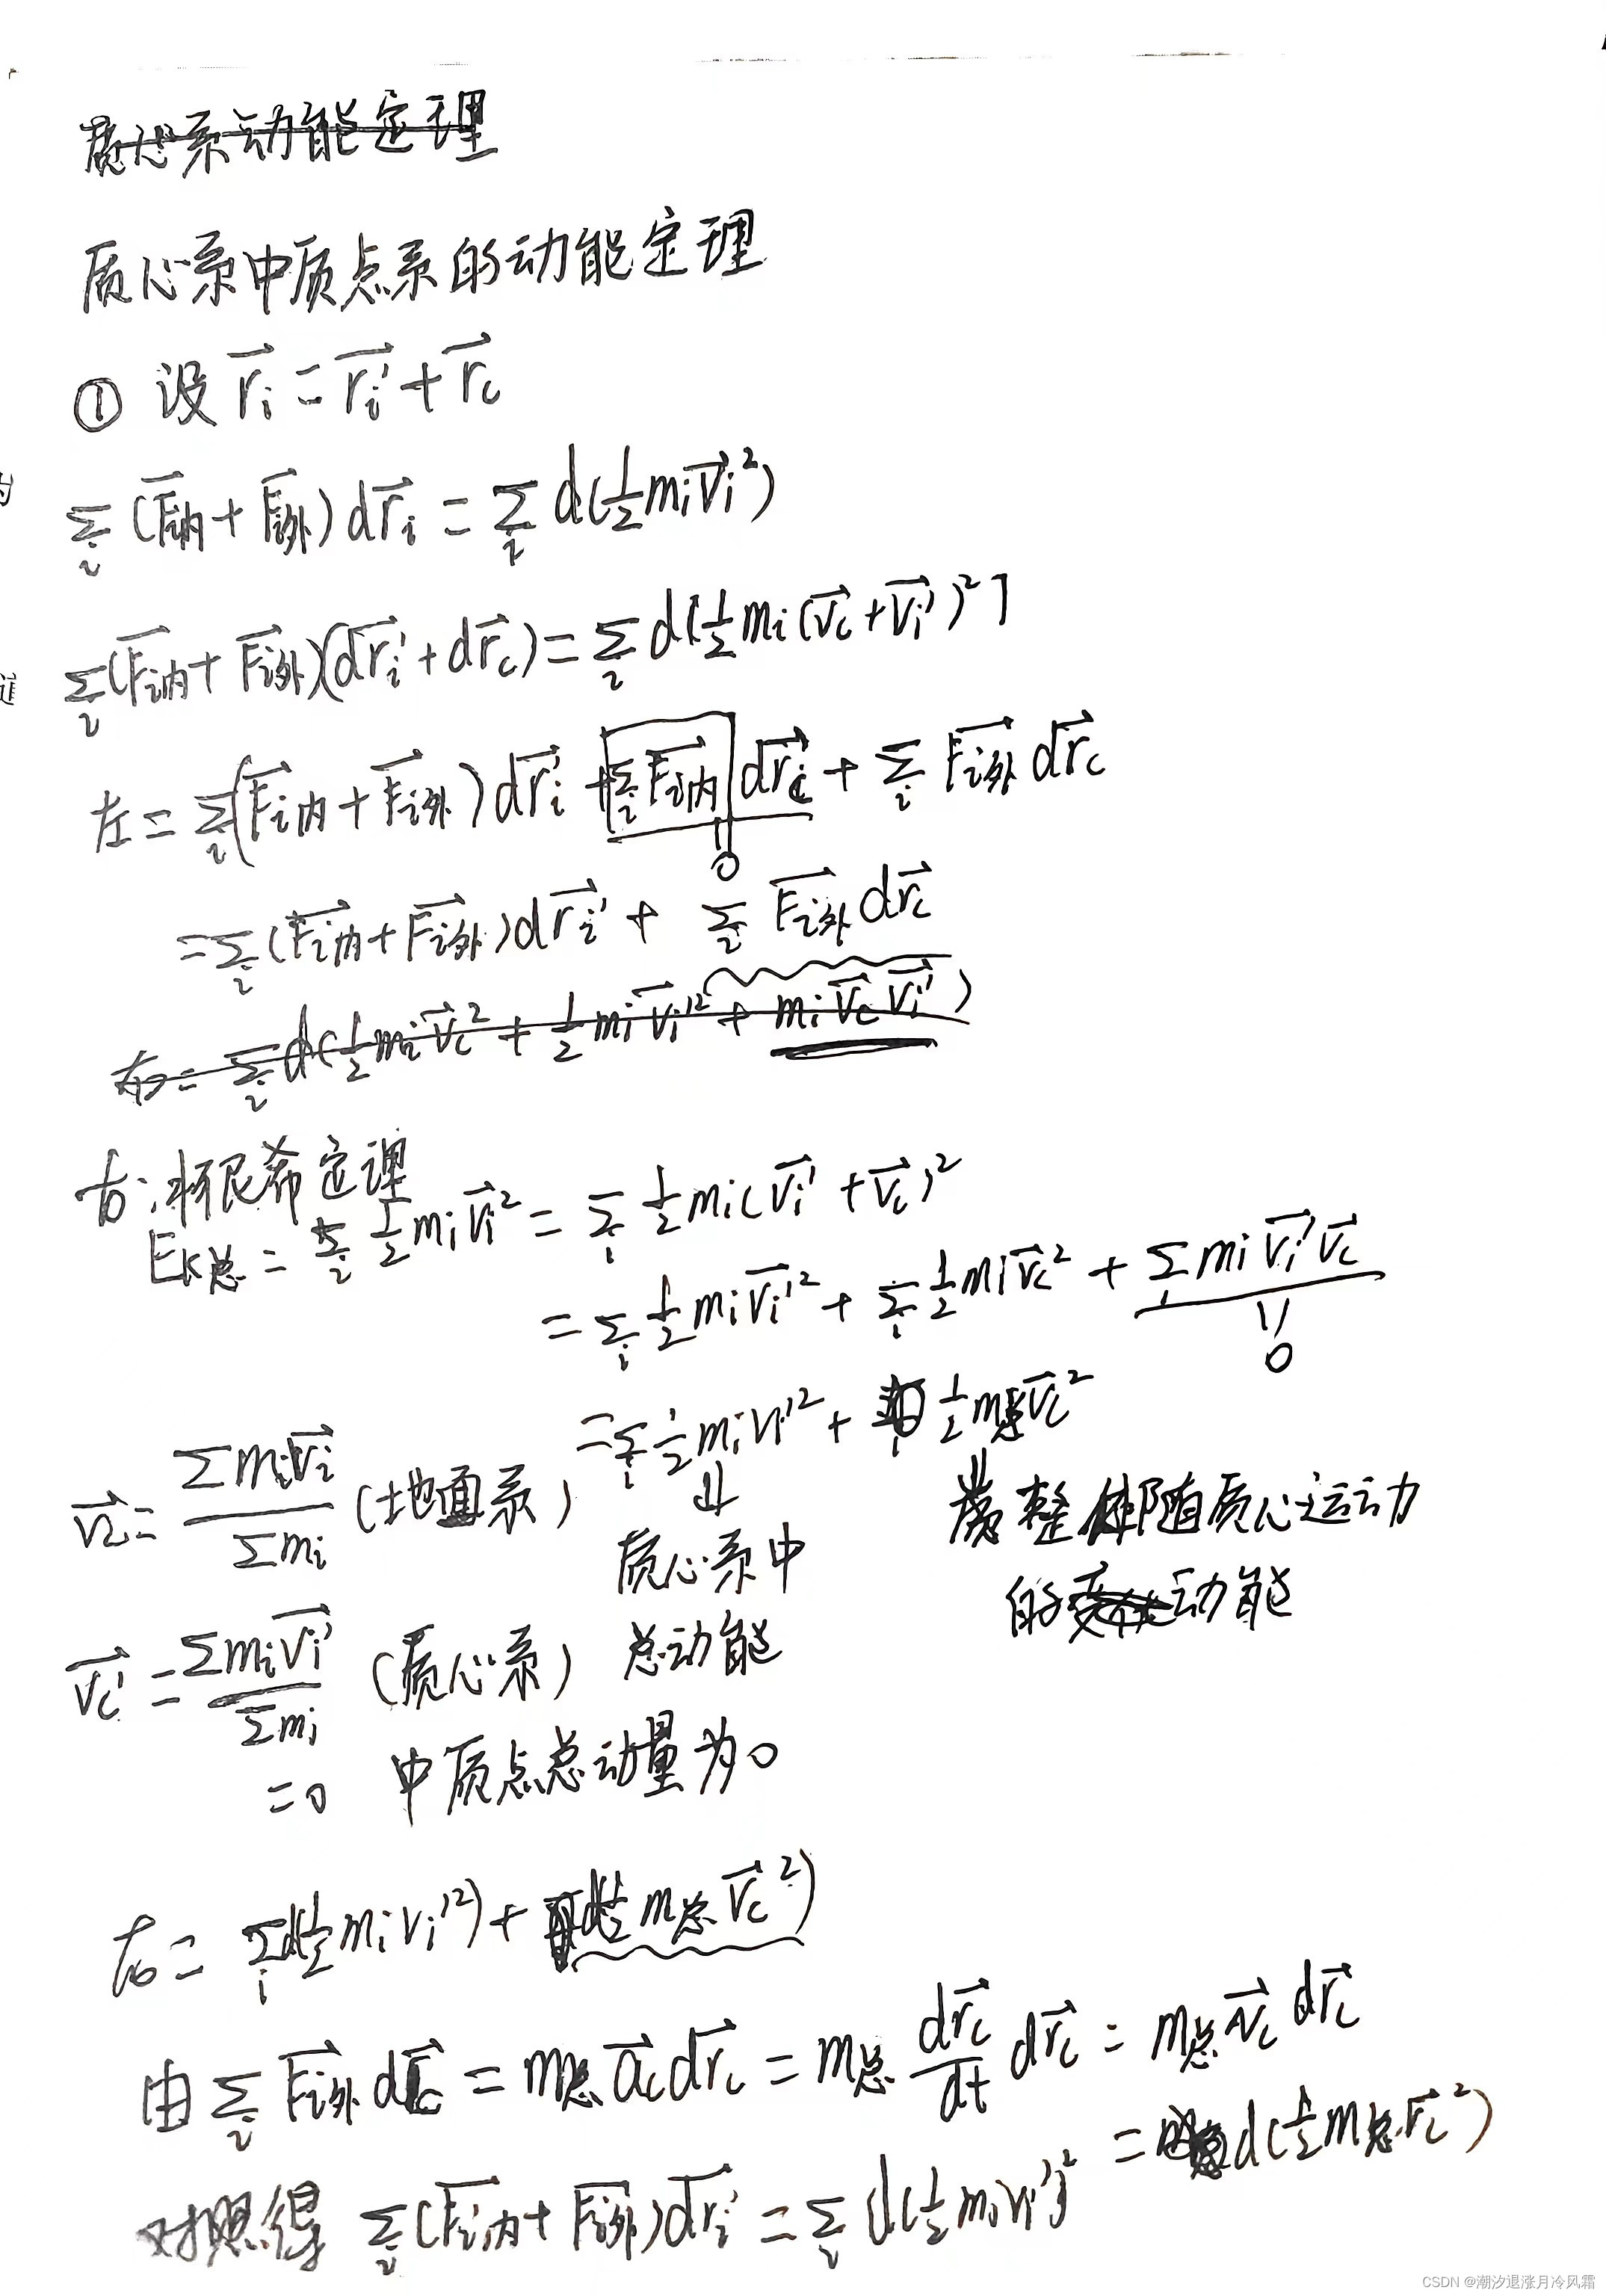 质心系动能定理
质心系中质点系的动能定理
① 设 $\vec{r_i} = \vec{r_i'} + \vec{r_c}$
$\sum_i (\vec{F_{i内}} + \vec{F_{i外}}) d\vec{r_i} = \sum_i d(\frac{1}{2} m_i \vec{v_i}^2)$
$\sum_i (\vec{F_{i内}} + \vec{F_{i外}})(d\vec{r_i'} + d\vec{r_c}) = \sum_i d[\frac{1}{2} m_i (\vec{v_c} + \vec{v_i'})^2]$
左 = $\sum_i (\vec{F_{i内}} + \vec{F_{i外}}) d\vec{r_i'} + \sum_i \vec{F_{i内}} d\vec{r_c} + \sum_i \vec{F_{i外}} d\vec{r_c}$
0
$= \sum_i (\vec{F_{i内}} + \vec{F_{i外}}) d\vec{r_i'} + \sum_i \vec{F_{i外}} d\vec{r_c}$
右 = $\sum_i d(\frac{1}{2} m_i \vec{v_c}^2 + \frac{1}{2} m_i \vec{v_i'}^2 + m_i \vec{v_c} \vec{v_i'})$
右:柯尼希定理
$E_{K总} = \sum_i \frac{1}{2} m_i \vec{v_i}^2 = \sum_i \frac{1}{2} m_i (\vec{v_i'} + \vec{v_c})^2$
$= \sum_i \frac{1}{2} m_i \vec{v_i'}^2 + \sum_i \frac{1}{2} m_i \vec{v_c}^2 + \sum_i m_i \vec{v_i'} \vec{v_c}$
0
$= \sum_i \frac{1}{2} m_i v_i'^2 + \frac{1}{2} m_总 \vec{v_c}^2$
质心系中
总动能
整体随质心运动
的动能
$\vec{v_c} = \frac{\sum m_i \vec{v_i}}{\sum m_i}$ (地面系)
$\vec{v_c'} = \frac{\sum m_i \vec{v_i'}}{\sum m_i}$ (质心系)
= 0 中质点总动量为0
右 = $\sum_i d(\frac{1}{2} m_i v_i'^2) + d(\frac{1}{2} m_总 \vec{v_c}^2)$
由 $\sum_i \vec{F_{i外}} d\vec{r_c} = m_总 \vec{a_c} d\vec{r_c} = m_总 \frac{d\vec{r_c}}{dt} d\vec{r_c} = m_总 \vec{v_c} d\vec{r_c}$
$= d(\frac{1}{2} m_总 \vec{r_c}^2)$
对照得 $\sum_i (\vec{F_{i内}} + \vec{F_{i外}}) d\vec{r_i'} = \sum_i d(\frac{1}{2} m_i v_i')^2$
CSDN @潮汐退涨月冷风霜